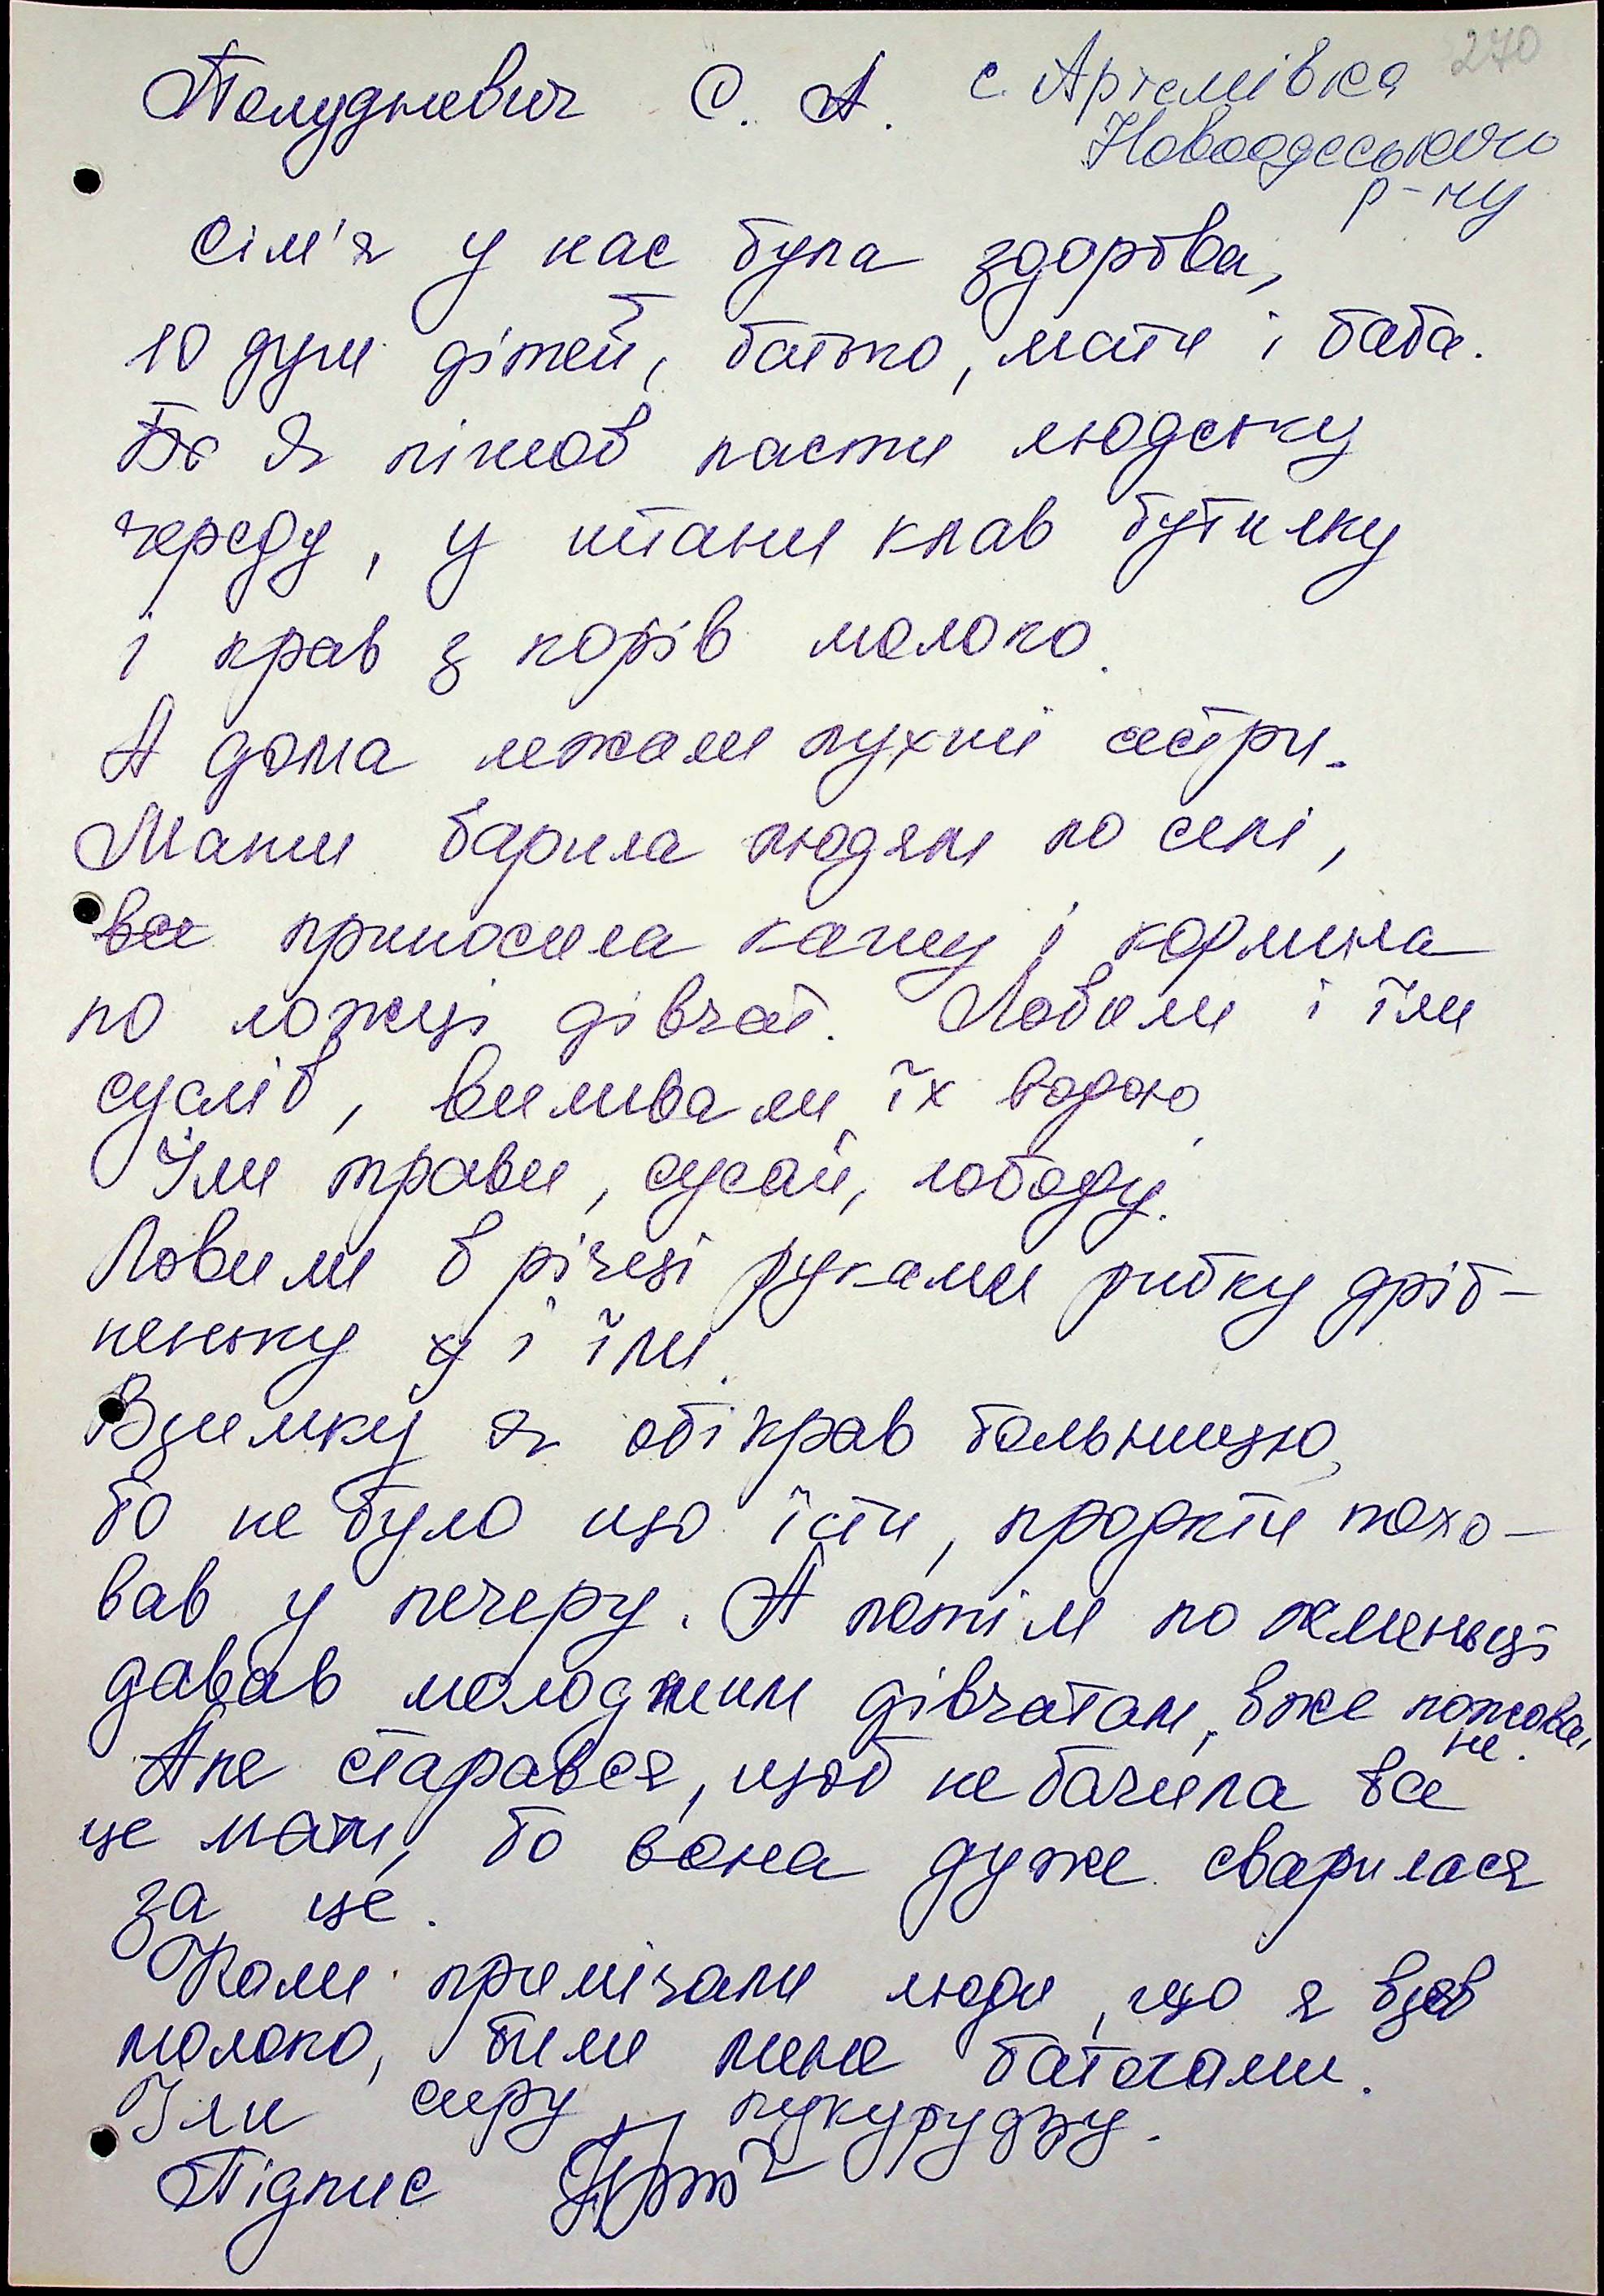 270
Полудневич С. А. с. Артемівка
Новоодеського
р-ну
Сім'я у нас була здорова,
10 душ дітей, батько, мати і баба.
Бо Я пішов пасти людську
череду, у штани клав бутилку
і крав з корів молоко.
А дома лежали пухлі сестри.
Мати варила людям по селі,
все приносила кашу і кормила
по ложці дівчат. Ловили і їли
суслів, виливали їх водою.
Їли трави, сусай, лободу.
Ловили в річці руками рибку дріб-
неньку у і їли.
Взимку я обікрав больницю,
бо не було що їсти, продкти похо-
вав у печеру. А потім по жменьці
давав молодшим дівчатам, вже пожова,
не.
Але старався, щоб не бачила все
це мати, бо вона дуже сварилася
за це.
Коли примічали люди, що я взяв
молоко, били мене батогами.
Їли сиру кукурудзу.
Підпис